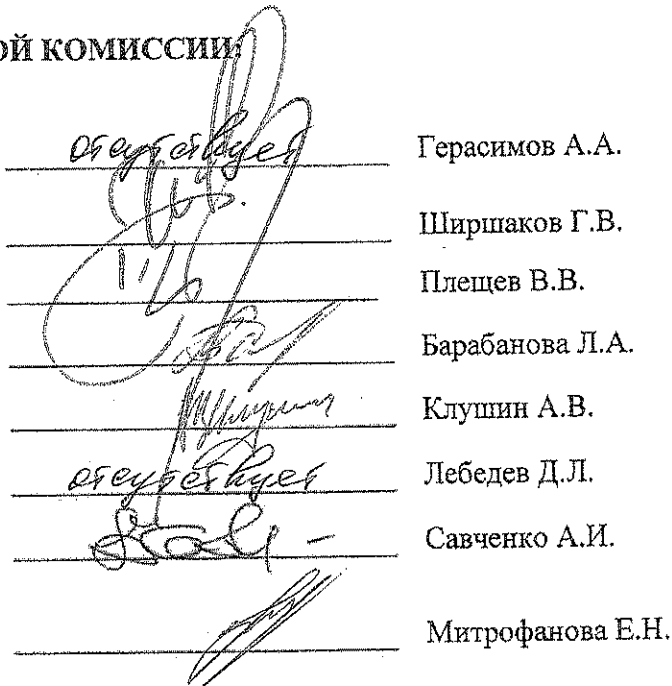 ОЙ КОМИССИИ:
отсутствует Герасимов А.А.
Ширшаков Г.В.
Плещев В.В.
Барабанова Л.А.
Клушин А.В.
отсутствует Лебедев Д.Л.
Савченко А.И.
Митрофанова Е.Н.